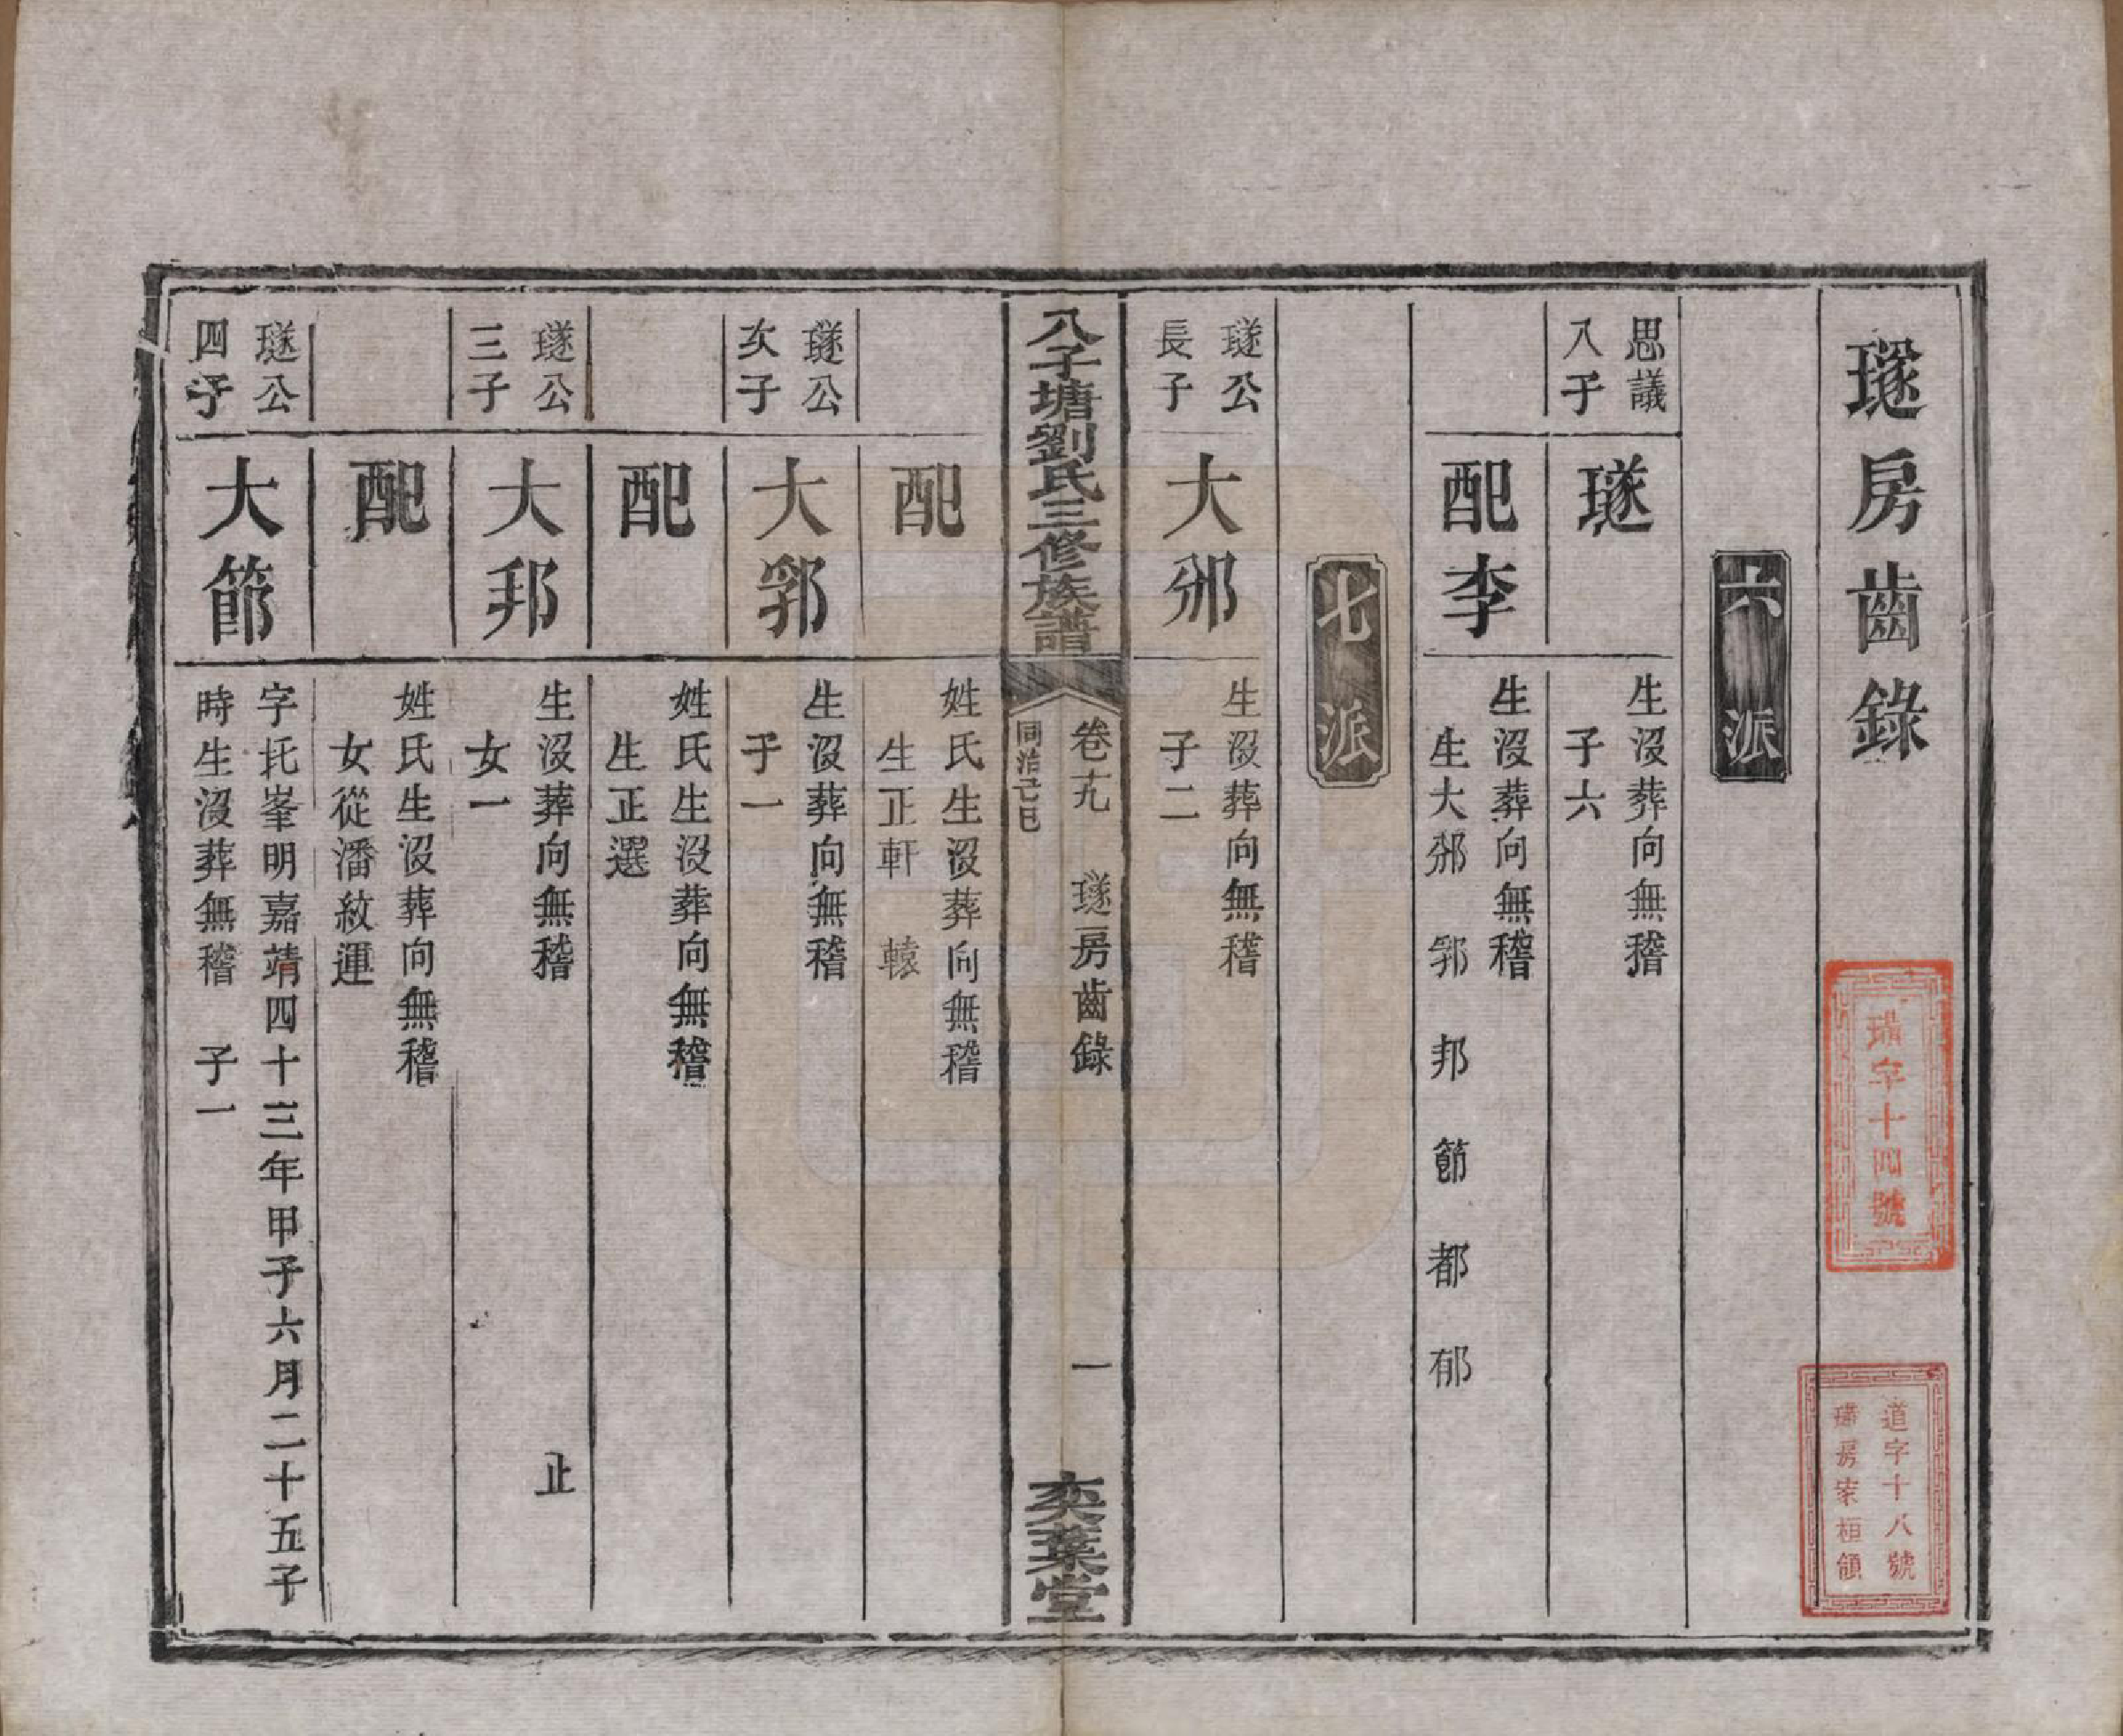 璲房齒錄
璜字十四號
道字十八號
璜房家桓領
六派
思議
八子
璲
生沒葬向無稽
子六
配李
生沒葬向無稽
生大邠 郛 邦 節 都 郁
七派
璲公
長子
大邠
生沒葬向無稽
子二
八子塘劉氏三修族譜
卷十九 璲房齒錄 一
同治己巳
奕葉堂
配
姓氏生沒葬向無稽
生正軒 轅
璲公
次子
大郛
生沒葬向無稽
子一
配
姓氏生沒葬向無稽
生正選
璲公
三子
大邦
生沒葬向無稽 止
女一
配
姓氏生沒葬向無稽
女從潘紋運
璲公
四子
大節
字托峯明嘉靖四十三年甲子六月二十五子
時生沒葬無稽 子一